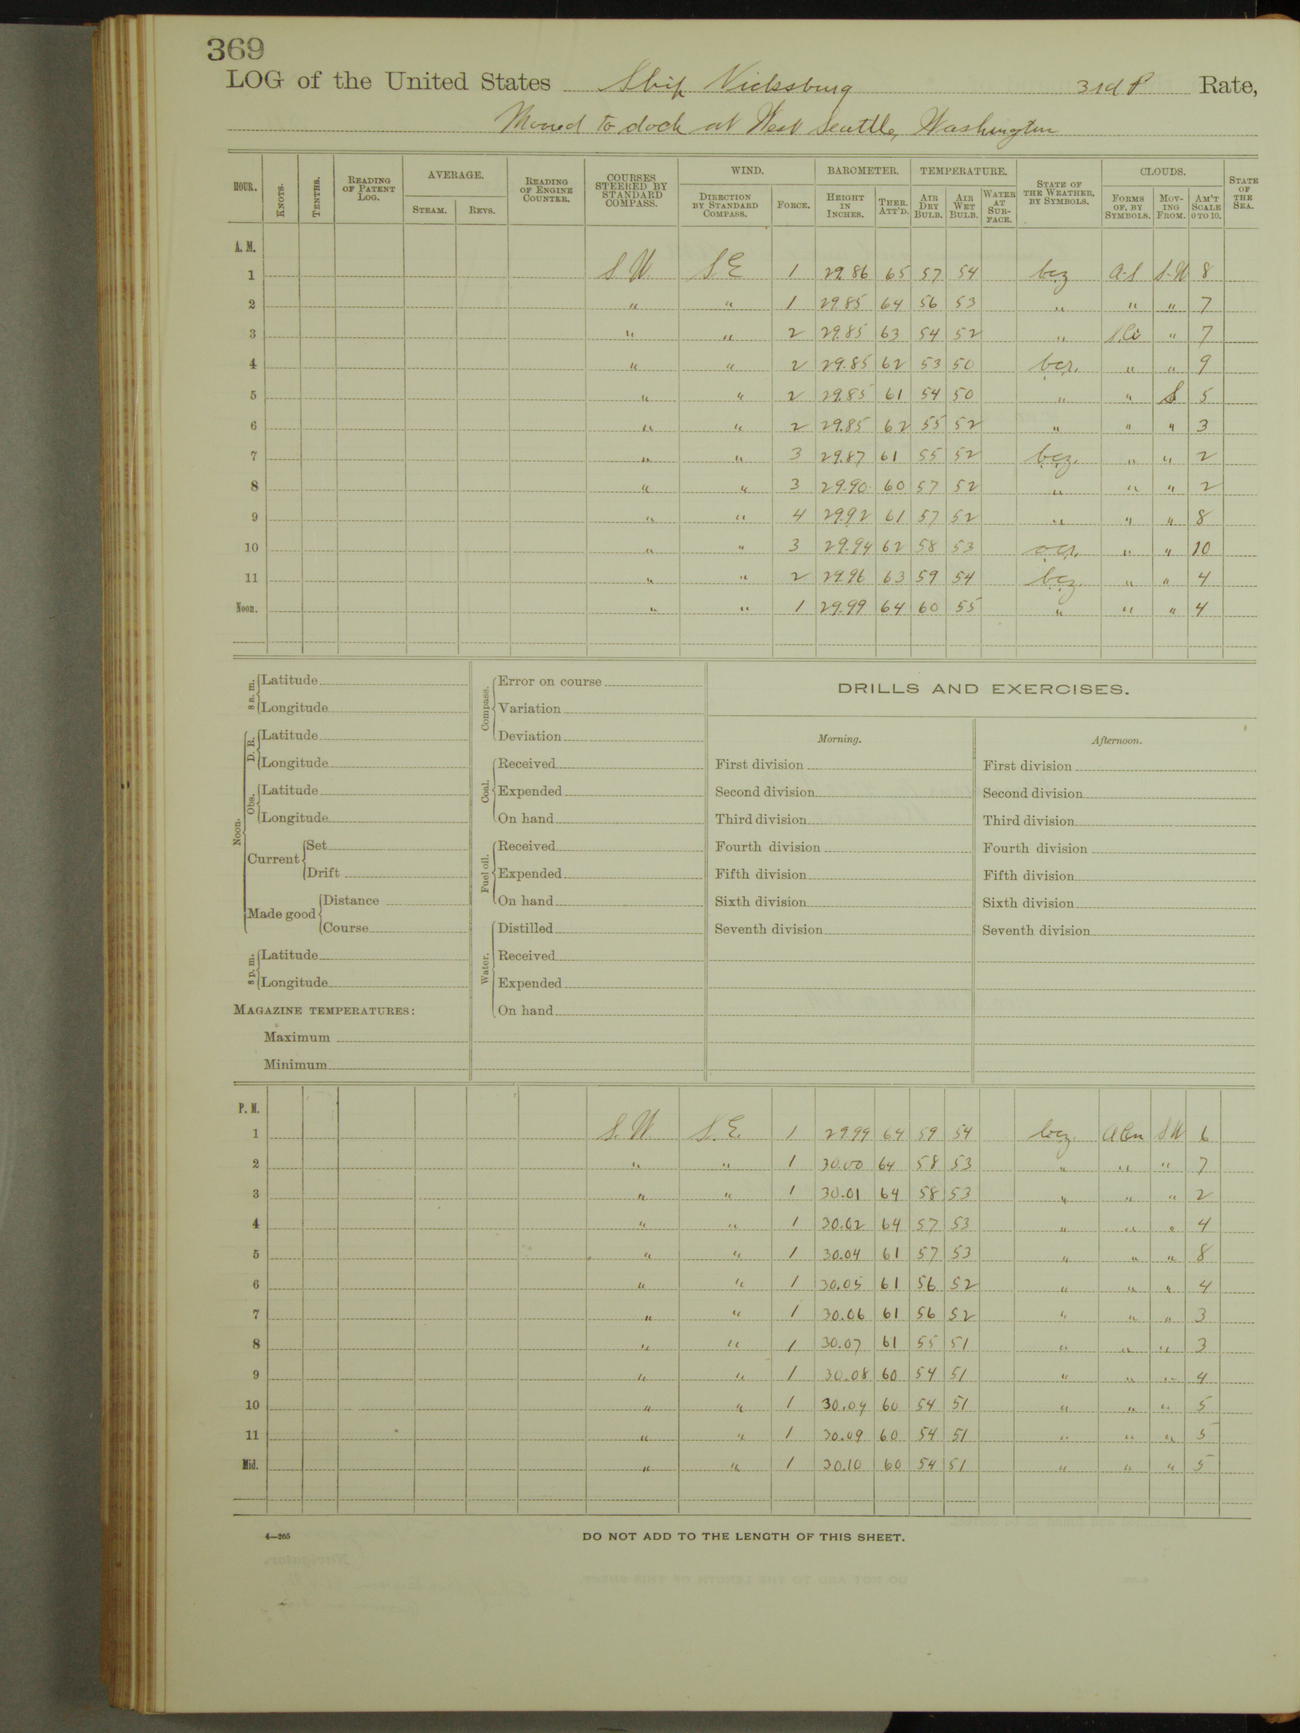 369
LOG of the United States Ship Vicksburg 3rd P Rate,
Moored to dock at West Seattle, Washington
HOUR. KNOTS. TENTHS. READING OF PATENT LOG. AVERAGE. STEAM. REVS. READING OF ENGINE COUNTER. COURSES STEERED BY STANDARD COMPASS. WIND. DIRECTION BY STANDARD COMPASS. FORCE. BAROMETER. HEIGHT IN INCHES. THER. ATT'D. TEMPERATURE. AIR DRY BULB. AIR WET BULB. WATER AT SURFACE. STATE OF THE WEATHER, BY SYMBOLS. CLOUDS. FORMS OF, BY SYMBOLS. MOVING FROM. AM'T SCALE 0 TO 10. STATE OF THE SEA.
A. M.
1 S.W. S.E. 1 29.86 65 57 54 bcz A-S S-W 8
2 " " 1 29.85 64 56 53 " " " 7
3 " " 2 29.85 63 54 52 " " 7
4 " " 2 29.85 62 53 50 bcr. " " 9
5 " " 2 29.85 61 54 50 " " S 5
6 " " 2 29.85 62 55 52 " " " 3
7 " " 3 29.87 61 55 52 bcz. " " 2
8 " " 3 29.90 60 57 52 " " " 2
9 " " 4 29.92 61 57 52 " " " 8
10 " " 3 29.94 62 58 53 ocr. " " 10
11 " " 2 29.96 63 59 54 bcz. " " 4
Noon. " " 1 29.99 64 60 55 " " " 4
8 a. m. Latitude
Longitude
Noon. D. R. Latitude
Longitude
Obs. Latitude
Longitude
Current Set
Drift
Made good Distance
Course
8 p. m. Latitude
Longitude
MAGAZINE TEMPERATURES:
Maximum
Minimum
Compass. Error on course
Variation
Deviation
Coal. Received
Expended
On hand
Fuel oil. Received
Expended
On hand
Water. Distilled
Received
Expended
On hand
DRILLS AND EXERCISES.
Morning.
First division
Second division
Third division
Fourth division
Fifth division
Sixth division
Seventh division
Afternoon.
First division
Second division
Third division
Fourth division
Fifth division
Sixth division
Seventh division
P. M.
1 S.W. S.E. 1 29.99 64 59 54 bcz. A Cu S W 6
2 " " 1 30.00 64 58 53 " " " 7
3 " " 1 30.01 64 58 53 " " " 2
4 " " 1 30.02 64 57 53 " " " 4
5 " " 1 30.04 61 57 53 " " " 8
6 " " 1 30.05 61 56 52 " " " 4
7 " " 1 30.06 61 56 52 " " " 3
8 " " 1 30.07 61 55 51 " " " 3
9 " " 1 30.08 60 54 51 " " " 4
10 " " 1 30.09 60 54 51 " " " 5
11 " " 1 30.09 60 54 51 " " " 5
Mid. " " 1 30.10 60 54 51 " " " 5
4—265
DO NOT ADD TO THE LENGTH OF THIS SHEET.